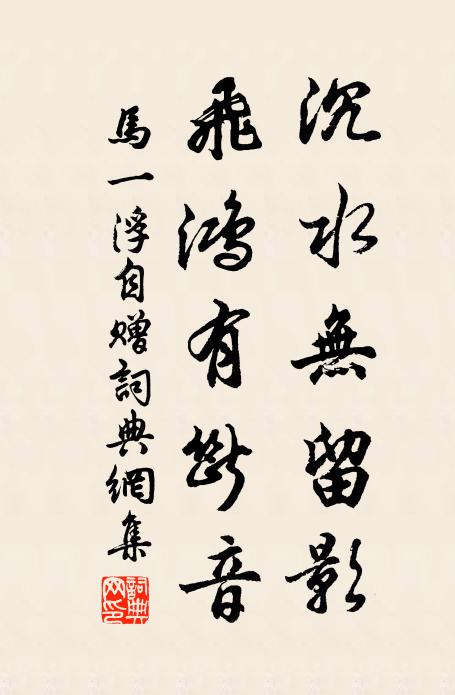 沉水無留影
飛鴻有斷音
馬一浮自贈詞典網集
詞典网印